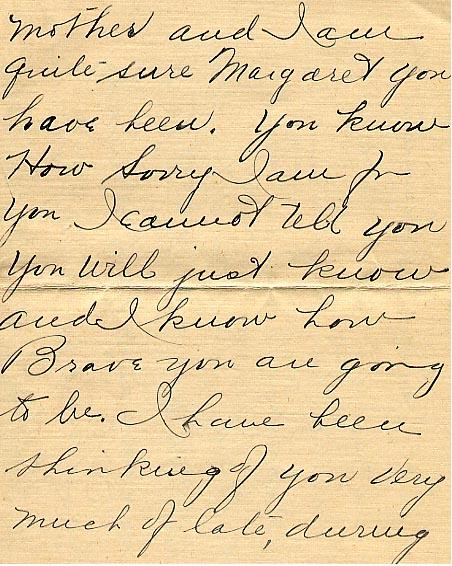 mother and I am
quite sure Margaret you
have been. You know
How sorry I am for
you I cannot tell you
you will just know
and I know how
Brave you are going
to be. I have been
thinking of you very
much of late, during